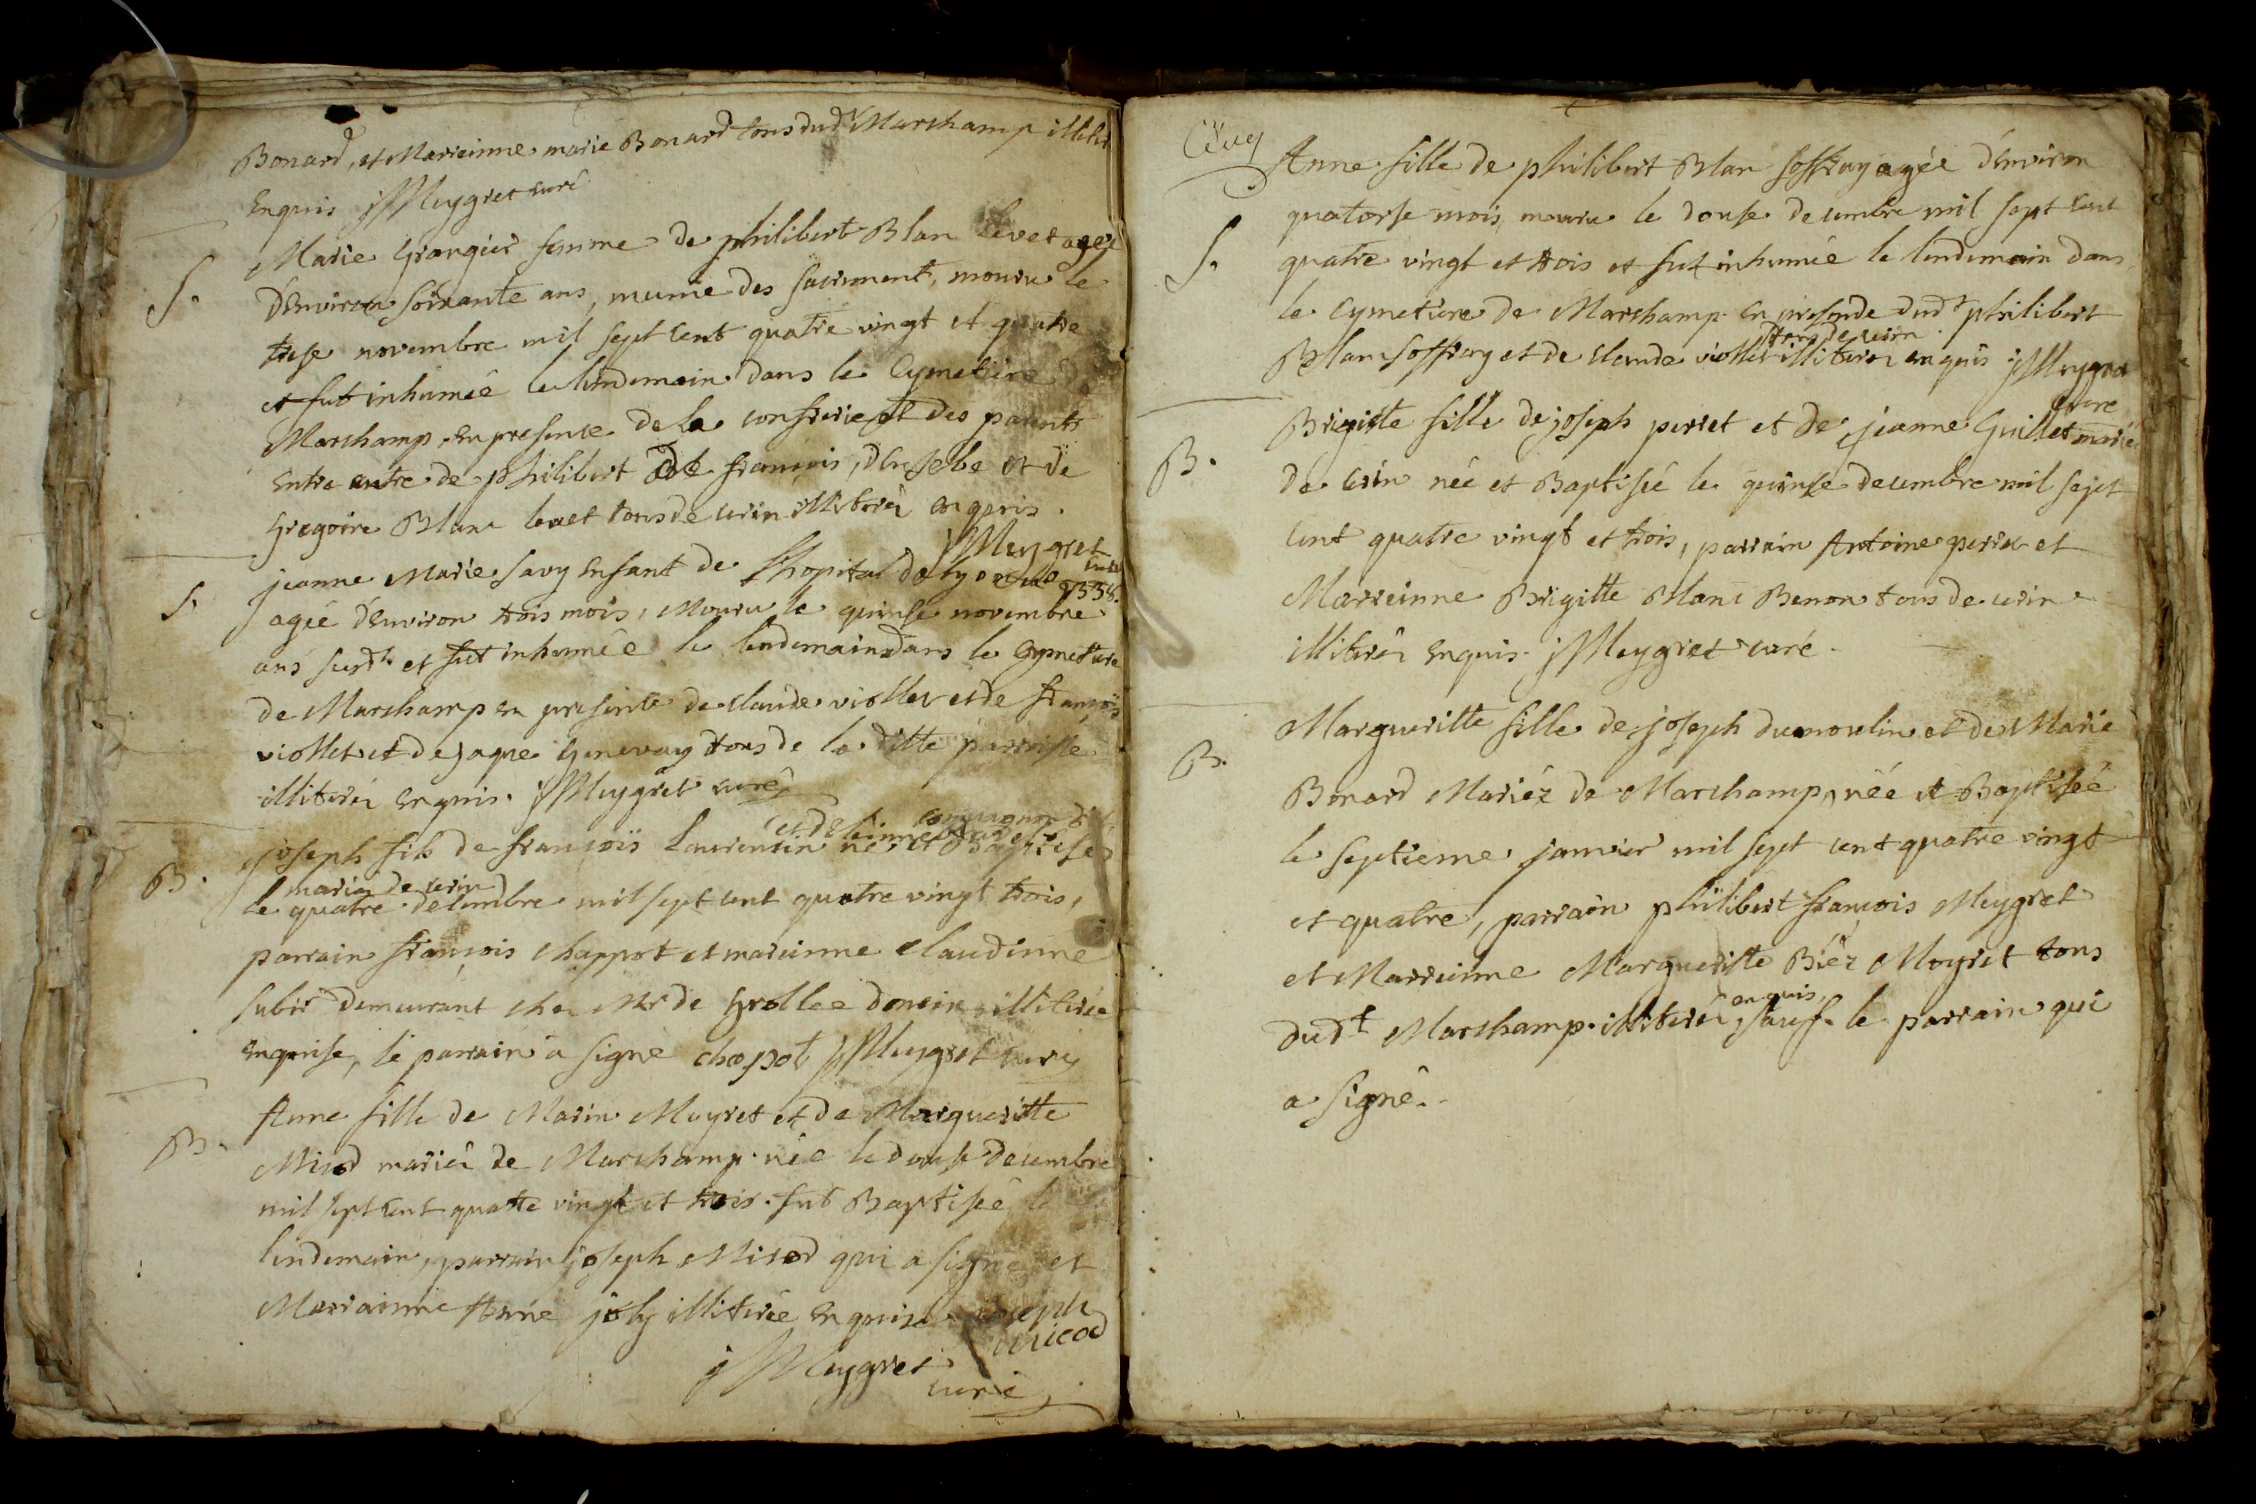 Bonard, et Marreinne marie Bonard tous dud.t Marchamp illiterés
Enquis jMeygret curé
S.
Marie Grangier femme de philibert Blan levet agée
D'Environ soixante ans, munie des sacrement, mouru le
treze novembre mil sept cent quatre vingt et quatre
et fut inhumée le lendemain dans le Cymetiere de
Marchamp. En presence de la confrerie et des parents
Entre autre de philibert de francois, d'Eusebe et de
Gregoire Blanc levet tous de cerin illiterés enquis.
jMeygret curé
S.
jeanne Marie savy Enfant de l'hopital de lyon
agée d'Environ trois mois, Mouru le quinse novembre
ans surd.t et fut inhumée le lendemain dans le Cymetiere
de Marchamp en presence de claude viollet et de francois
viollet et de jaque Genevay tous de la ditte parroisse
illiterés enquis. jMeygret curé
B.
joseph fils de francois laurencin et de né et Baptisé
mariés de cerin
le quatre decembre mil sept cent quatre vingt trois,
parrain francois chappot et mareinne Claudinne
subit demeurant chez Mr de Grollee illiterée
enquise, le parrain a signé chapot jMeygret curé
B.
Anne fille de Marin Moyret et de Margueritte
Micod mariés de Marchamp. née le douse decembre
mil sept cent quatre vingt et trois. fut Baptisée le
lendemain, parrain joseph Micod qui a signé et
Marrainne Anne joly illiterée enquise joseph
micod
jMeygret
curé
S.
Anne fille de philibert Blan soffray agée d'Environ
quatorse mois, mouru le douse decembre mil sept cent
quatre vingt et trois et fut inhumée le lendemain dans
le Cymetiere de Marchamp. en presence dud.t philibert
tous de cerin
Blan soffray et de claude viollet illiterés enquis jMeygret
curé
B.
Brigitte fille de joseph perret et de jeanne Guillet mariés
de cerin née et Baptisée le quinse decembre mil sept
cent quatre vingt et trois, parrain Antoine perret et
Marreinne Brigitte Blanc Benon tous de cerin
illiterés enquis. jMeygret curé.
B.
Margueritte fille de joseph dumoulin et de Marie
Bonard Mariéz de Marchamp, née et Baptisée
le septieme janvier mil sept cent quatre vingt
et quatre, parrain philibert francois Meygret
et Marreinne Margueritte Biéz Moyret tous
enquis,
dud.t Marchamp. illiterés, sauf le parrain qui
a signé.